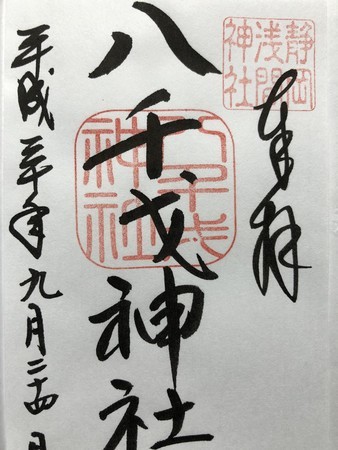 奉拝
静岡
浅間
神社
八千戈神社
八千戈
神社
平成三十年九月二十四日